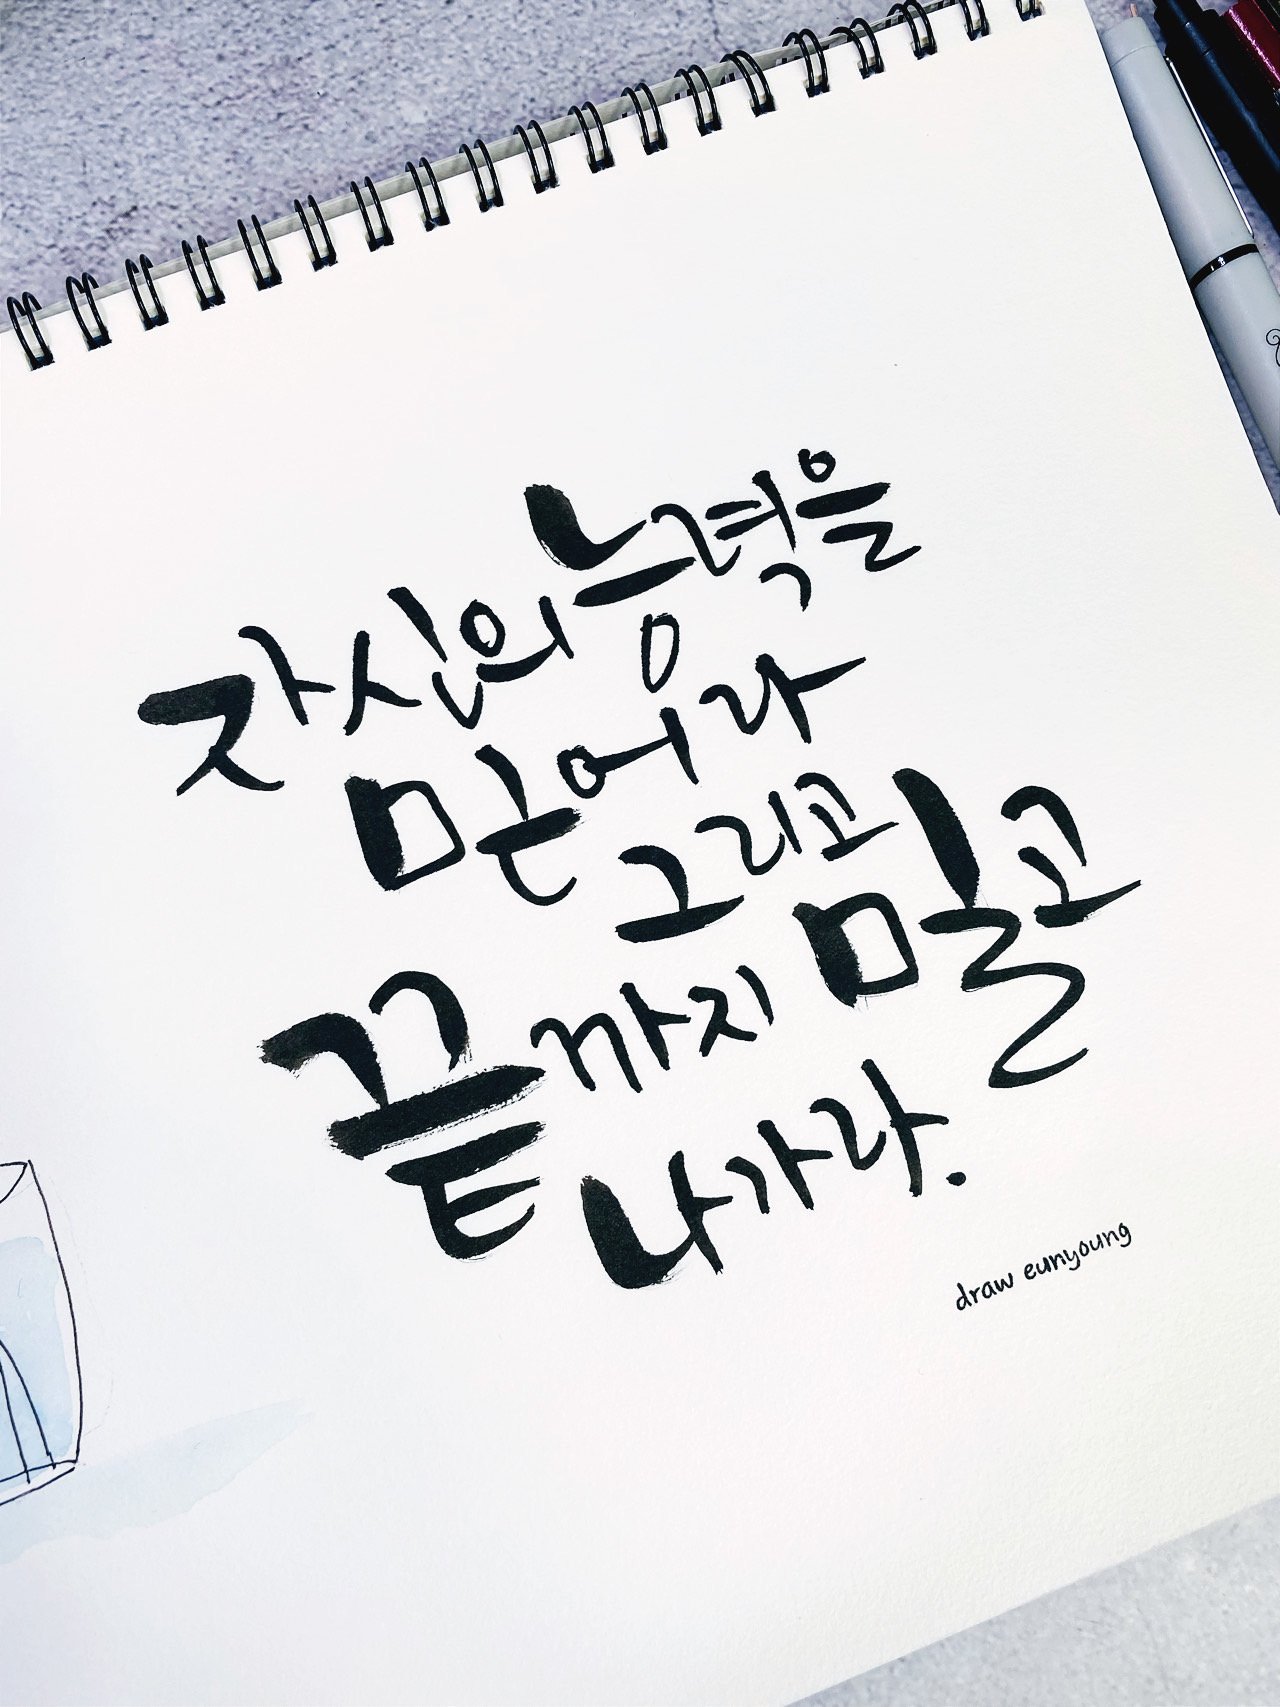 자신의 능력을
믿어라
그리고
끝까지 밀고
나가라.
draw eunyoung